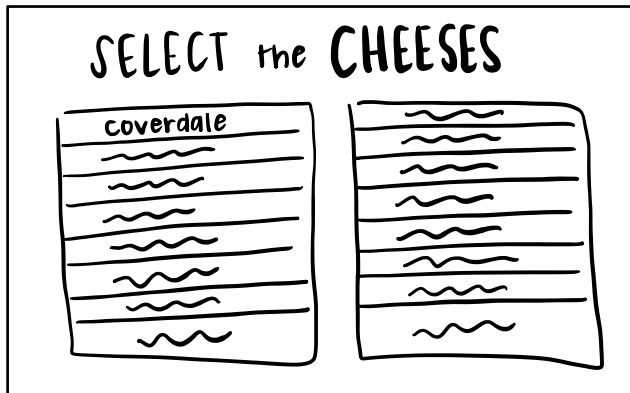 SELECT the CHEESES
coverdale